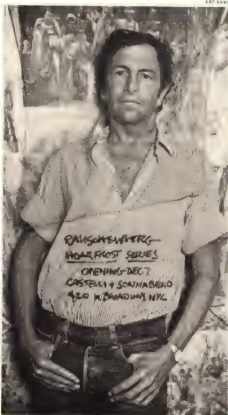 RAUSCHENBERG
HOARFROST SERIES
OPENING DEC 7
CASTELLI + SONNABEND
420 W. BROADWAY NYC